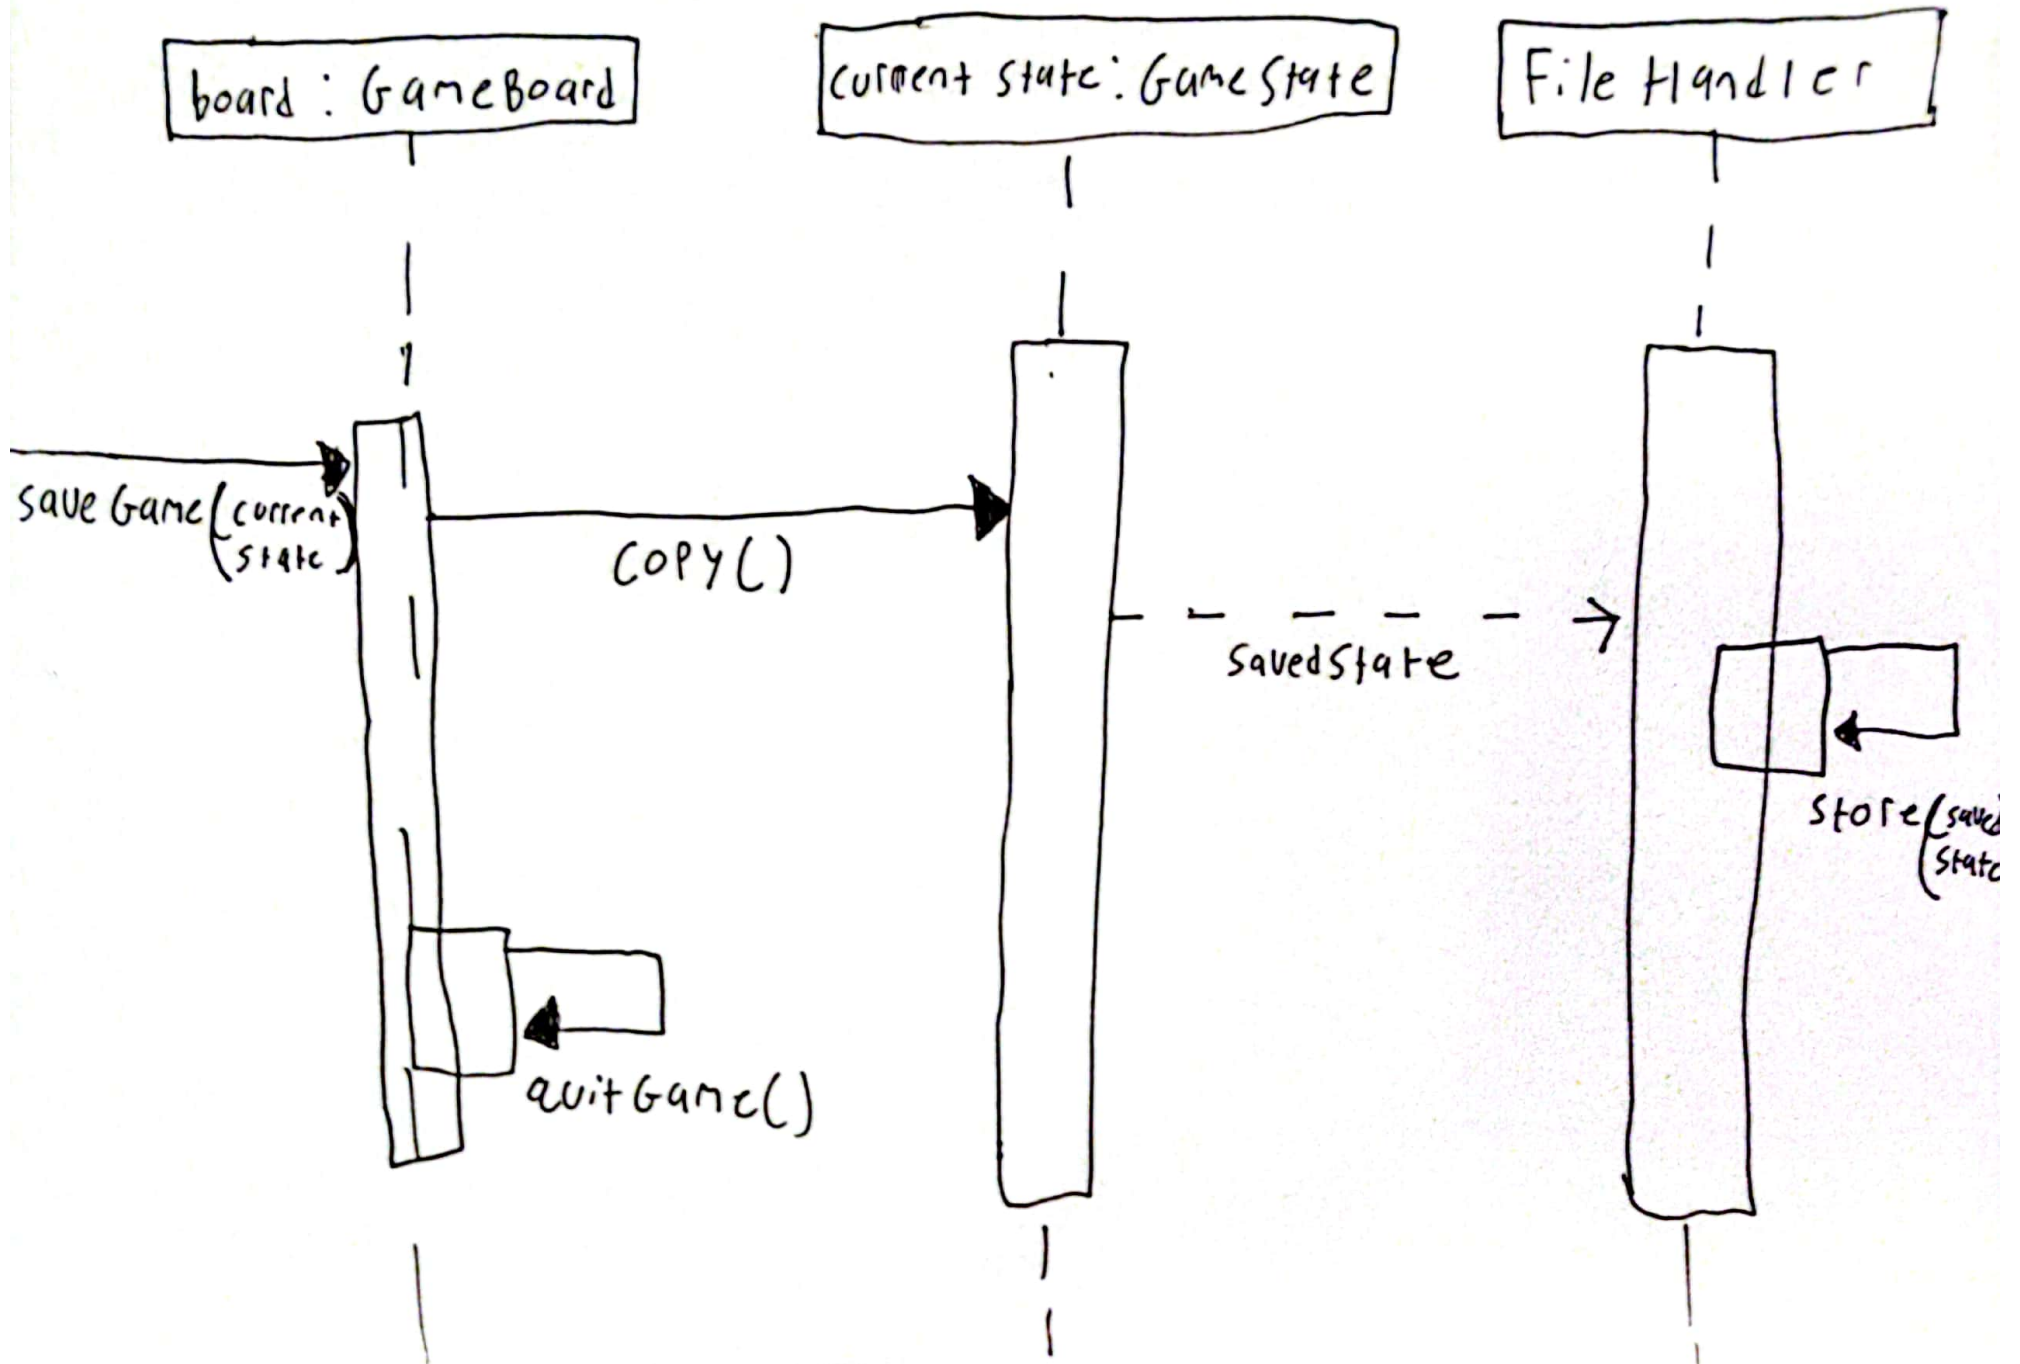 board : GameBoard
current state : GameState
File Handler
saveGame(current
state)
COPY()
savedState
store(saved
state
quitGame()